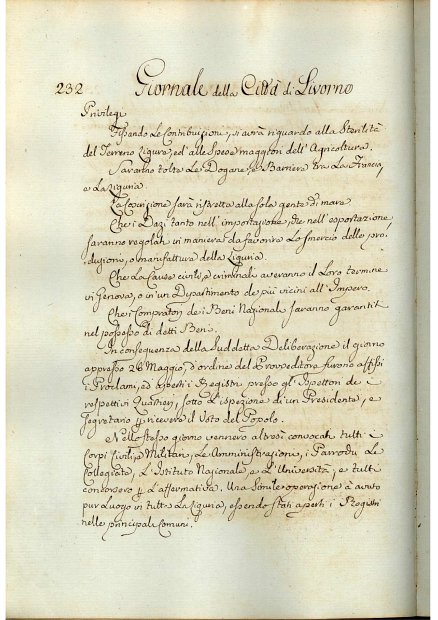 232 Giornale della Città di Livorno
Privilegi
Fissando Le Contribuzioni, si avrà riguardo alla Sterilità
del Terreno Ligure, ed alle Spese maggiori dell'Agricoltura.
Saranno tolte Le Dogane, e Barriere tra La Francia,
e La Liguria.
La Coscrizione sarà ristretta alla sola gente di mare
Che i Dazi tanto nell'importazione, che nell'esportazione
saranno regolati in maniera da favorire Lo smercio delle pro-
duzioni, o manifatture della Liguria.
Che La Cause civili, e criminali averanno il Loro termine
in Genova, o in un Dipartimento de più vicini all'Impero.
Che i Compratori dei Beni Nazionali saranno garantiti
nel possesso di detti Beni.
In conseguenza della suddetta Deliberazione il giorno
appresso 26 Maggio, d'ordine del Provveditore furono affissi
i Proclami, ed aperti i Registri presso gl'Ispettori de
respettivi Quartieri, sotto L'ispezione di un Presidente, e
Segretario p ricevere il Voto del Popolo.
Nello stesso giorno vennero altresì convocati tutti i
Corpi Civili, e Militari, Le Amministrazioni, i Parrochi Le
Collegiate, L'Istituto Nazionale e L'Università, e tutti
concorsero p L'affermativa. Una Simile operazione à avuto
pur Luogo in tutta La Liguria, essendo stati aperti i Registri
nelle principali Comuni.